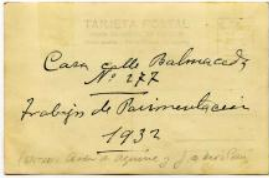 TARJETA POSTAL
Casa calle Balmaceda
Nº 277
Trabajos de Pavimentación
1932